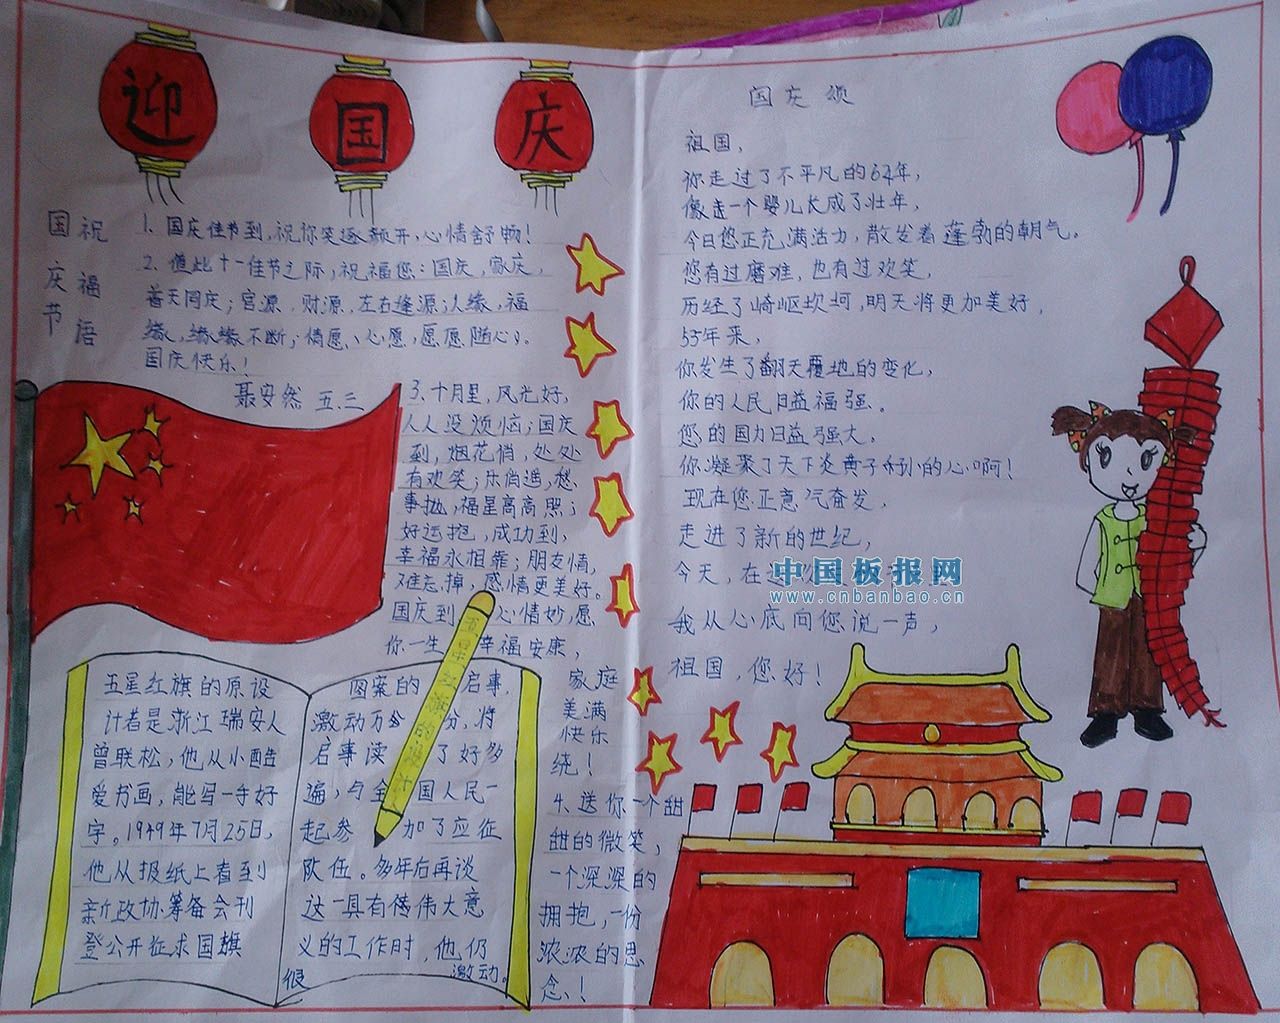 迎国庆
国庆节
祝福语
1、国庆佳节到,祝你笑逐颜开,心情舒畅!
2、值此十一佳节之际,祝福您:国庆,家庆,
普天同庆;官源、财源,左右逢源;人缘,福
缘,缘缘不断;情愿、心愿,愿愿随心。
国庆快乐!
聂安然 五.三
3、十月里,风光好,
人人没烦恼;国庆
到,烟花俏,处处
有欢笑;乐逍遥,愁
事抛,福星高高照;
好运抱,成功到,
幸福永相靠;朋友情,
难忘掉,感情更美好。
国庆到 心情妙,愿
你一生 幸福安康,
家庭
美满
快乐
绕!
4、送你一个甜
甜的微笑,
一个深深的
拥抱,一份
浓浓的思
念!
五星红旗的原设
计者是浙江瑞安人
曾联松,他从小酷
爱书画,能写一手好
字。1949年7月25日,
他从报纸上看到
新政协筹备会刊
登公开征求国旗
图案的 启事,
激动万分 分,将
启事读 了好多
遍,与全 国人民一
起参 加了应征
队伍。多年后再谈
这一具有伟大意
义的工作时,他仍
很 激动。
五星红旗的设计人
国庆颂
祖国,
你走过了不平凡的64年,
像走一个婴儿长成了壮年,
今日您正充满活力,散发着蓬勃的朝气。
您有过磨难,也有过欢笑,
历经了崎岖坎坷,明天将更加美好,
55年来,
你发生了翻天覆地的变化,
你的人民日益福强。
您的国力日益强大,
你凝聚了天下炎黄子孙的心啊!
现在您正意气奋发,
走进了新的世纪,
今天,在这
我从心底向您说一声,
祖国,您好!
中国板报网
www.cnbanbao.cn